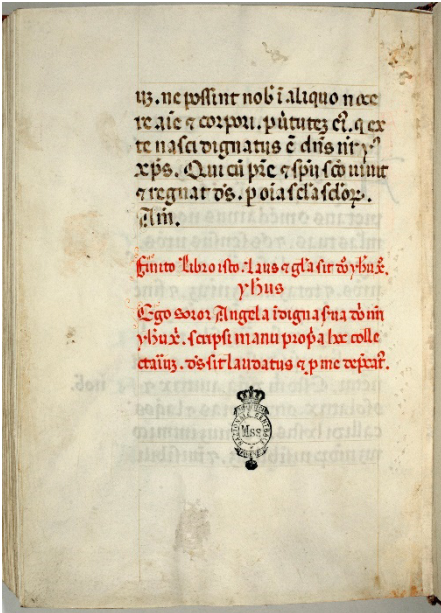 uz. ne possint nob̄ ī aliquo noce
re aīe ⁊ corpori. p̄ ūtutez ei᷒. q̄ ex
te nasci dignatus ē dn̄s nr̄
xp̄s. Qui cū pr̄e ⁊ spū sc̄o uiuit
⁊ regnat d̄s. p oīa scl̄a scl̄oꝝ.
Am̄.
Finito libro isto. laus ⁊ gl̄a sit
yħus
Ego soror Angela īdigna
scripsi manu prop̄a hec colle
d̄s sit laudatus ⁊ p me
Mss